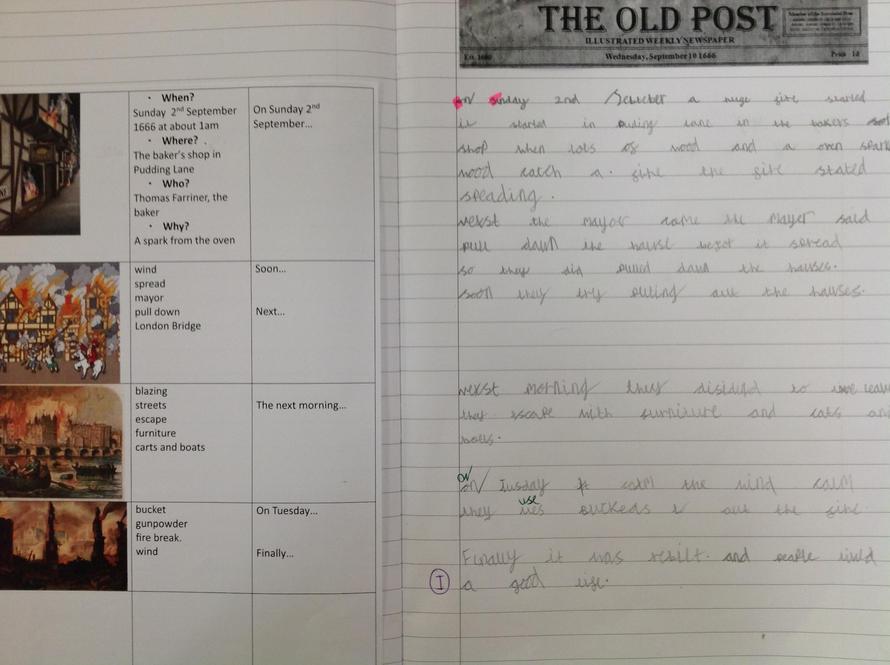 THE OLD POST
ILLUSTRATED WEEKLY NEWSPAPER
Est. 1660
Wednesday, September 10 1666
Price 1d
• When?
Sunday 2nd September
1666 at about 1am
• Where?
The baker's shop in
Pudding Lane
• Who?
Thomas Farriner, the
baker
• Why?
A spark from the oven
On Sunday 2nd
September...
wind
spread
mayor
pull down
London Bridge
Soon...
Next...
blazing
streets
escape
furniture
carts and boats
The next morning...
bucket
gunpowder
fire break.
wind
On Tuesday...
Finally...
on Sunday 2nd a huge fire started
it started in puding lane in the bakers
shop when lots of wood and a oven spark
wood catch a fire the fire stated
speading.
nexst the mayor came the mayer said
pull daun the hause it spread
so they did daun the hauses.
soon they try puling aut the hauses.
nexst morning they disided to
they escape with furniture and cats and
boats.
on
on Tusday the wind calm
use
they buckeds aut the fire
Finally it was rebilt. and peaple
I
a good life.